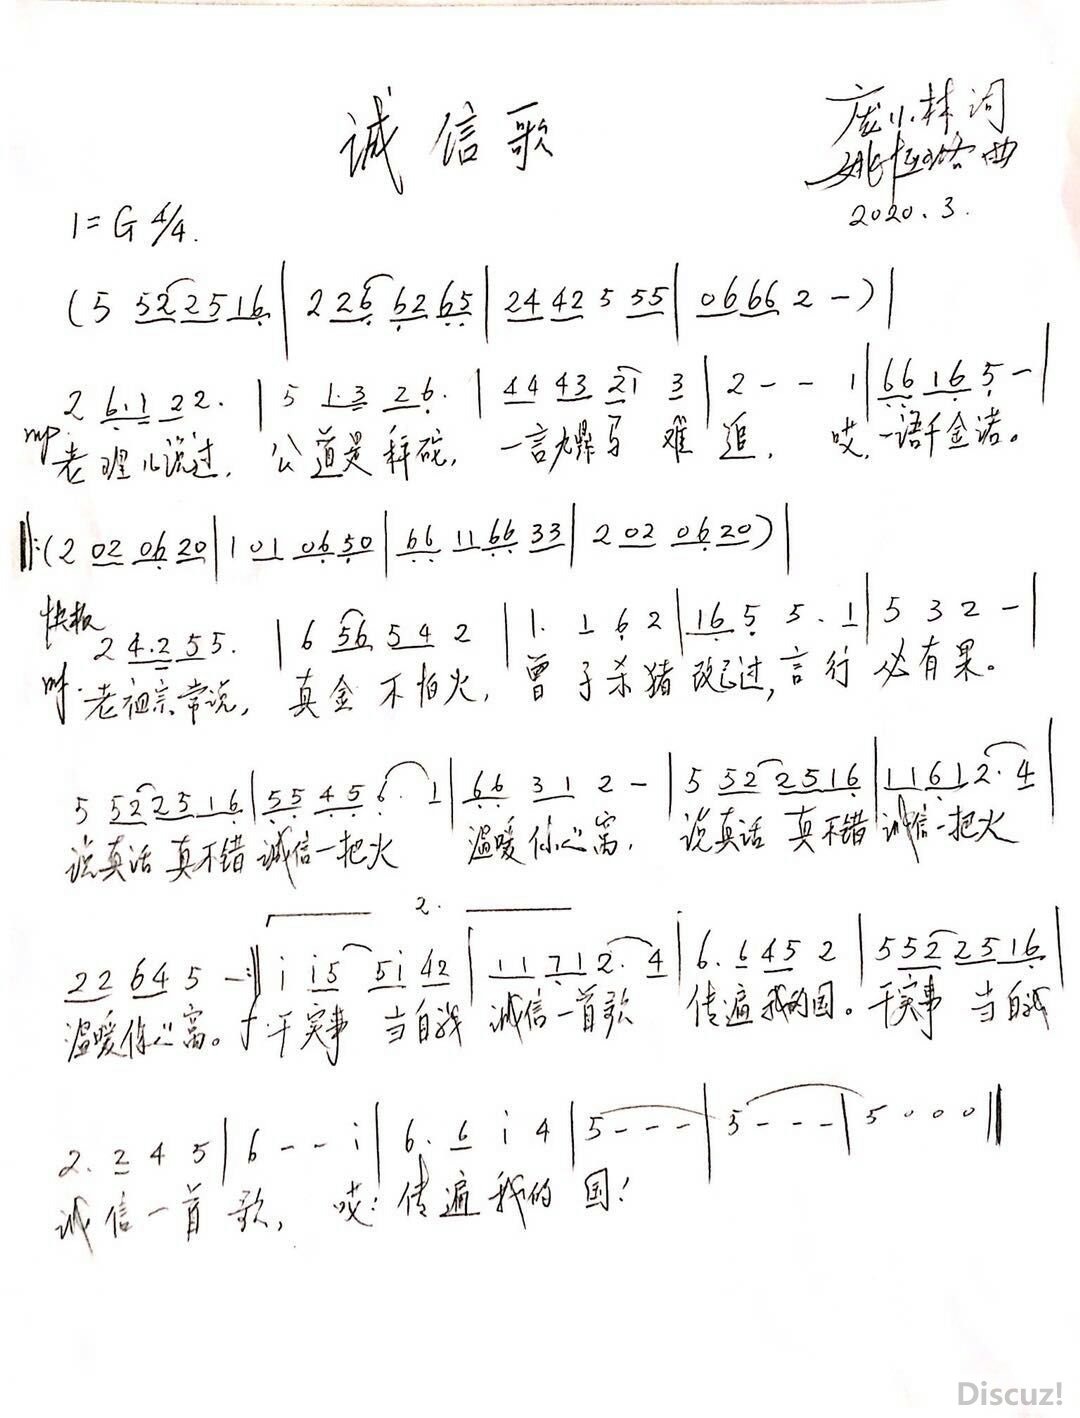 诚信歌
庞小林词
姚 曲
2020.3.
1=G 4/4.
(5 52 25 16 | 2 26 62 65 | 24 42 5 55 | 06 66 2 -) |
2 6.1 22. | 5 1.3 26. | 44 43 21 3 | 2 - - 1 | 66 16 5 - |
mp 老理儿说过, 公道是秤砣, 一言九鼎马难追, 哎,一语千金诺。
‖:(2 02 06 20 | 1 01 06 50 | 66 11 66 33 | 2 02 06 20) |
快板
2 4.2 55. | 6 56 54 2 | 1. 1 6 2 | 16 5 5. 1 | 5 3 2 - |
mf. 老祖宗常说, 真金不怕火, 曾子杀猪改己过,言行必有果。
5 52 25 16 | 55 45 6. 1 | 66 31 2 - | 5 52 25 16 | 11 61 2. 4 |
说真话 真不错 诚信一把火 温暖你心窝, 说真话 真不错 诚信一把火
2.
22 64 5 - :‖ i i5 5i 42 | 11 71 2. 4 | 6. 6 45 2 | 552 25 16 |
温暖你心窝。f 干实事 当自我 诚信一首歌 传遍我的国。干实事 当自我
2. 2 4 5 | 6 - - i | 6. 6 i 4 | 5 - - - | 5 - - - | 5 0 0 0 ‖
诚信一首歌, 哎: 传遍我的国!
Discuz!